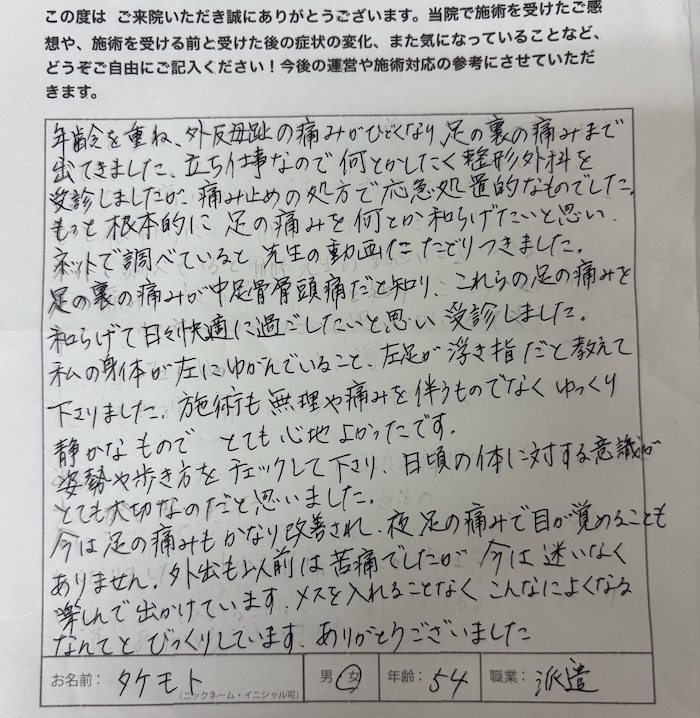 この度は ご来院いただき誠にありがとうございます。当院で施術を受けたご感
想や、施術を受ける前と受けた後の症状の変化、また気になっていることなど、
どうぞご自由にご記入ください！今後の運営や施術対応の参考にさせていただ
きます。
年齢を重ね、外反母趾の痛みがひどくなり足の裏の痛みまで
出てきました。立ち仕事なので何とかしたく整形外科を
受診しましたが、痛み止めの処方で応急処置的なものでした。
もっと根本的に足の痛みを何とか和らげたいと思い、
ネットで調べていると先生の動画にたどりつきました。
足の裏の痛みが中足骨骨頭痛だと知り、これらの足の痛みを
和らげて日々快適に過ごしたいと思い受診しました。
私の身体が左にゆがんでいること、左足が浮き指だと教えて
下さりました。施術も無理や痛みを伴うものでなくゆっくり
静かなもので とても心地よかったです。
姿勢や歩き方をチェックして下さり、日頃の体に対する意識が
とても大切なのだと思いました。
今は足の痛みもかなり改善され、夜足の痛みで目が覚めることも
ありません。外出も以前は苦痛でしたが 今は迷いなく
楽しんで出かけています。メスを入れることなく こんなによくなる
なんてと びっくりしています。ありがとうございました
お名前： タケモト (ニックネーム・イニシャル可) 男 女 年齢： 54 職業： 派遣